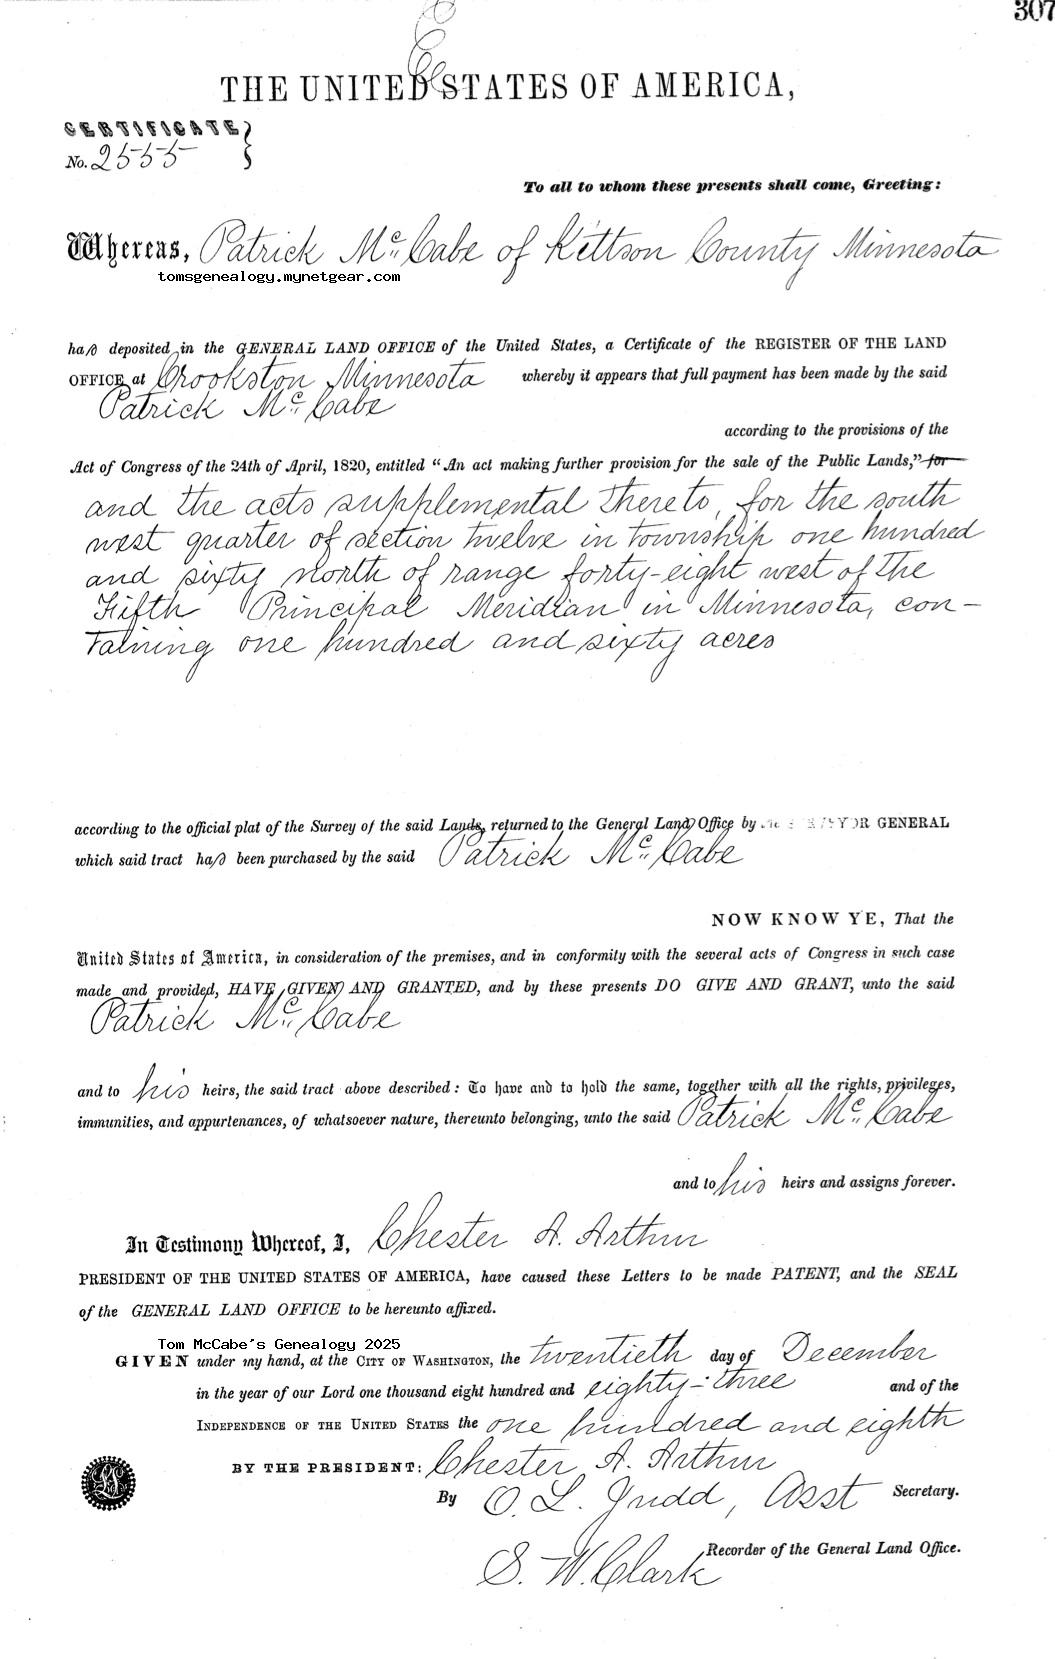 307
THE UNITED STATES OF AMERICA,
CERTIFICATE
No. 2555
To all to whom these presents shall come, Greeting:
Whereas, Patrick McCabe of Kittson County Minnesota
tomsgenealogy.mynetgear.com
has deposited in the GENERAL LAND OFFICE of the United States, a Certificate of the REGISTER OF THE LAND
OFFICE at Crookston Minnesota whereby it appears that full payment has been made by the said
Patrick McCabe
according to the provisions of the
Act of Congress of the 24th of April, 1820, entitled “An act making further provision for the sale of the Public Lands,” for
and the acts supplemental thereto, for the south
west quarter of section twelve in township one hundred
and sixty north of range forty-eight west of the
Fifth Principal Meridian in Minnesota, con-
taining one hundred and sixty acres
according to the official plat of the Survey of the said Lands, returned to the General Land Office by the SURVEYOR GENERAL
which said tract has been purchased by the said Patrick McCabe
NOW KNOW YE, That the
United States of America, in consideration of the premises, and in conformity with the several acts of Congress in such case
made and provided, HAVE GIVEN AND GRANTED, and by these presents DO GIVE AND GRANT, unto the said
Patrick McCabe
and to his heirs, the said tract above described: To have and to hold the same, together with all the rights, privileges,
immunities, and appurtenances, of whatsoever nature, thereunto belonging, unto the said Patrick McCabe
and to his heirs and assigns forever.
In Testimony Whereof, I, Chester A. Arthur
PRESIDENT OF THE UNITED STATES OF AMERICA, have caused these Letters to be made PATENT, and the SEAL
of the GENERAL LAND OFFICE to be hereunto affixed.
Tom McCabe's Genealogy 2025
GIVEN under my hand, at the CITY OF WASHINGTON, the twentieth day of December
in the year of our Lord one thousand eight hundred and eighty-three and of the
INDEPENDENCE OF THE UNITED STATES the one hundred and eighth
BY THE PRESIDENT: Chester A. Arthur
By O. L. Judd, Asst Secretary.
S. W. Clark Recorder of the General Land Office.